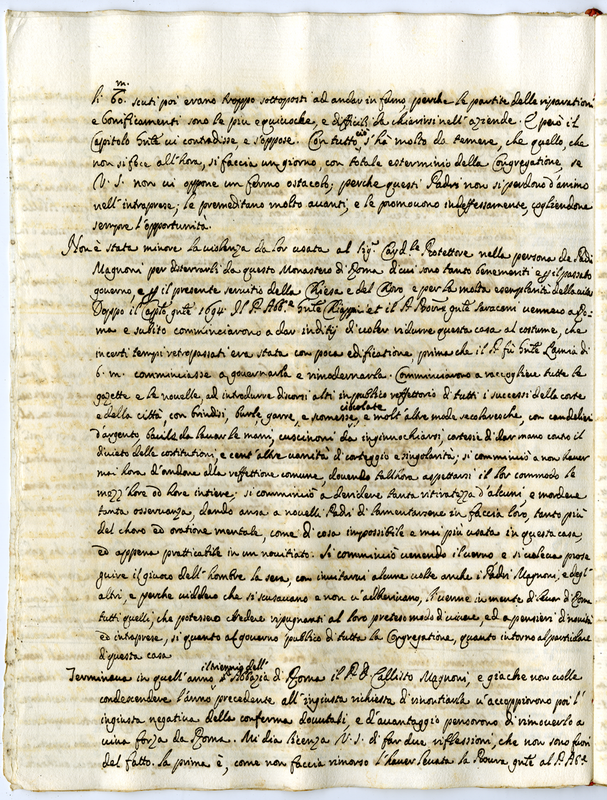 m.
li 60. scuti poi erano troppo sottoposti ad andar in fumo, perche le partite delle riparationi
e bonificamenti sono le piu equivoche, e difficili da chiarirsi nell'aziende. E però il
Capitolo gnle vi contradisse e s'oppose. Con tutto ciò s'hà molto da temere, che quello, che
non si fece all'hora, si faccia un giorno, con totale esterminio della Congregatione, se
V. S. non vi oppone un fermo ostacolo; perche questi Padri non si perdono d'animo
nell'intraprese; le premeditano molto avanti, e le promovono indefessamente, cogliendone
sempre l'opportunità.
Non è stata minore la violenza da lor usata al Sig.r Card.le Protettore nella persona de Padri
Magnoni per disterrarli da questo Monastero di Roma di cui sono tanto benemeriti e p il passato
governo, e p il presente servitio della Chiesa e del Choro e per la molta esemplarità della vita
Doppo il capto gnle 1694 Il P. Abb.e gnle Chieppi et il P. Procur.e gnle Saraceni vennero a Ro-
ma e subito comminciavono a dar inditij di voler ridurre questa casa al costume, che
in certi tempi retropassati era stata con poca edificatione, prima che il P. fù gnle Lamia di
b. m. comminciasse a governarla e rimodernarla. Comminciavono a raccogliere tutte le
gazette e le novelle, ad introdurre discorsi alti in publico reffettorio di tutti i successi della corte
e della città, con brindisi, burle, garre, e scomesse, e molt'altre mode secolaresche, con candelieri
ciocolate
d'argento, bacile da lavar le mani, cuscinoni da inginocchiarsi, cortesie di dar mano contro il
divieto delle costitutioni, e cent'altre vanità di corteggio e singolarità; si comminciò a non haver
mai hora d'andare alla reffettione comune, dovendo tallhora aspettarsi il lor commodo le
mezz'hore ed hore intiere; si comminciò a deridere tanta ritiratezza d'alcuni e mordere
tanta osservanza, dando ansa a novelli Padri di lamentarsene in faccia loro, tanto più
del choro ed oratione mentale, come di cosa impossibile e mai più usata in questa casa,
ed appena pratticabile in un novitiato. Si comminciò venendo il verno e si voleva prose
guire il giuoco dell'hombre la sera, con invitarvi alcune volte anche i Padri Magnoni, e degl'
altri, e perche viddero che si scusavano e non v'adherivano, li venne in mente di levar di Roma
tutti quelli, che potessero credere ripugnanti al loro preteso modo di vivere, ed a pensieri di novità
ed intraprese, si quanto al governo publico di tutta la Congregatione, quanto intorno al particolare
di questa casa
il triennio dell'
Terminava in quell'anno Abbazia di Roma il P. D. Callisto Magnoni, e giache non volle
condescendere l'anno precedente all'ingiusta richiesta di rinontiarla v'accoppiorono poi l'
ingiusta negativa della conferma dovutali, e d'avantaggio pensorono di rimoverlo a
viva forza da Roma. Mi dia licenza V. S. di far due riflessioni, che non sono fuori
del fatto. La prima è, come non faccia rimorso l'haver levata la Procura gnle al P. Ab.e